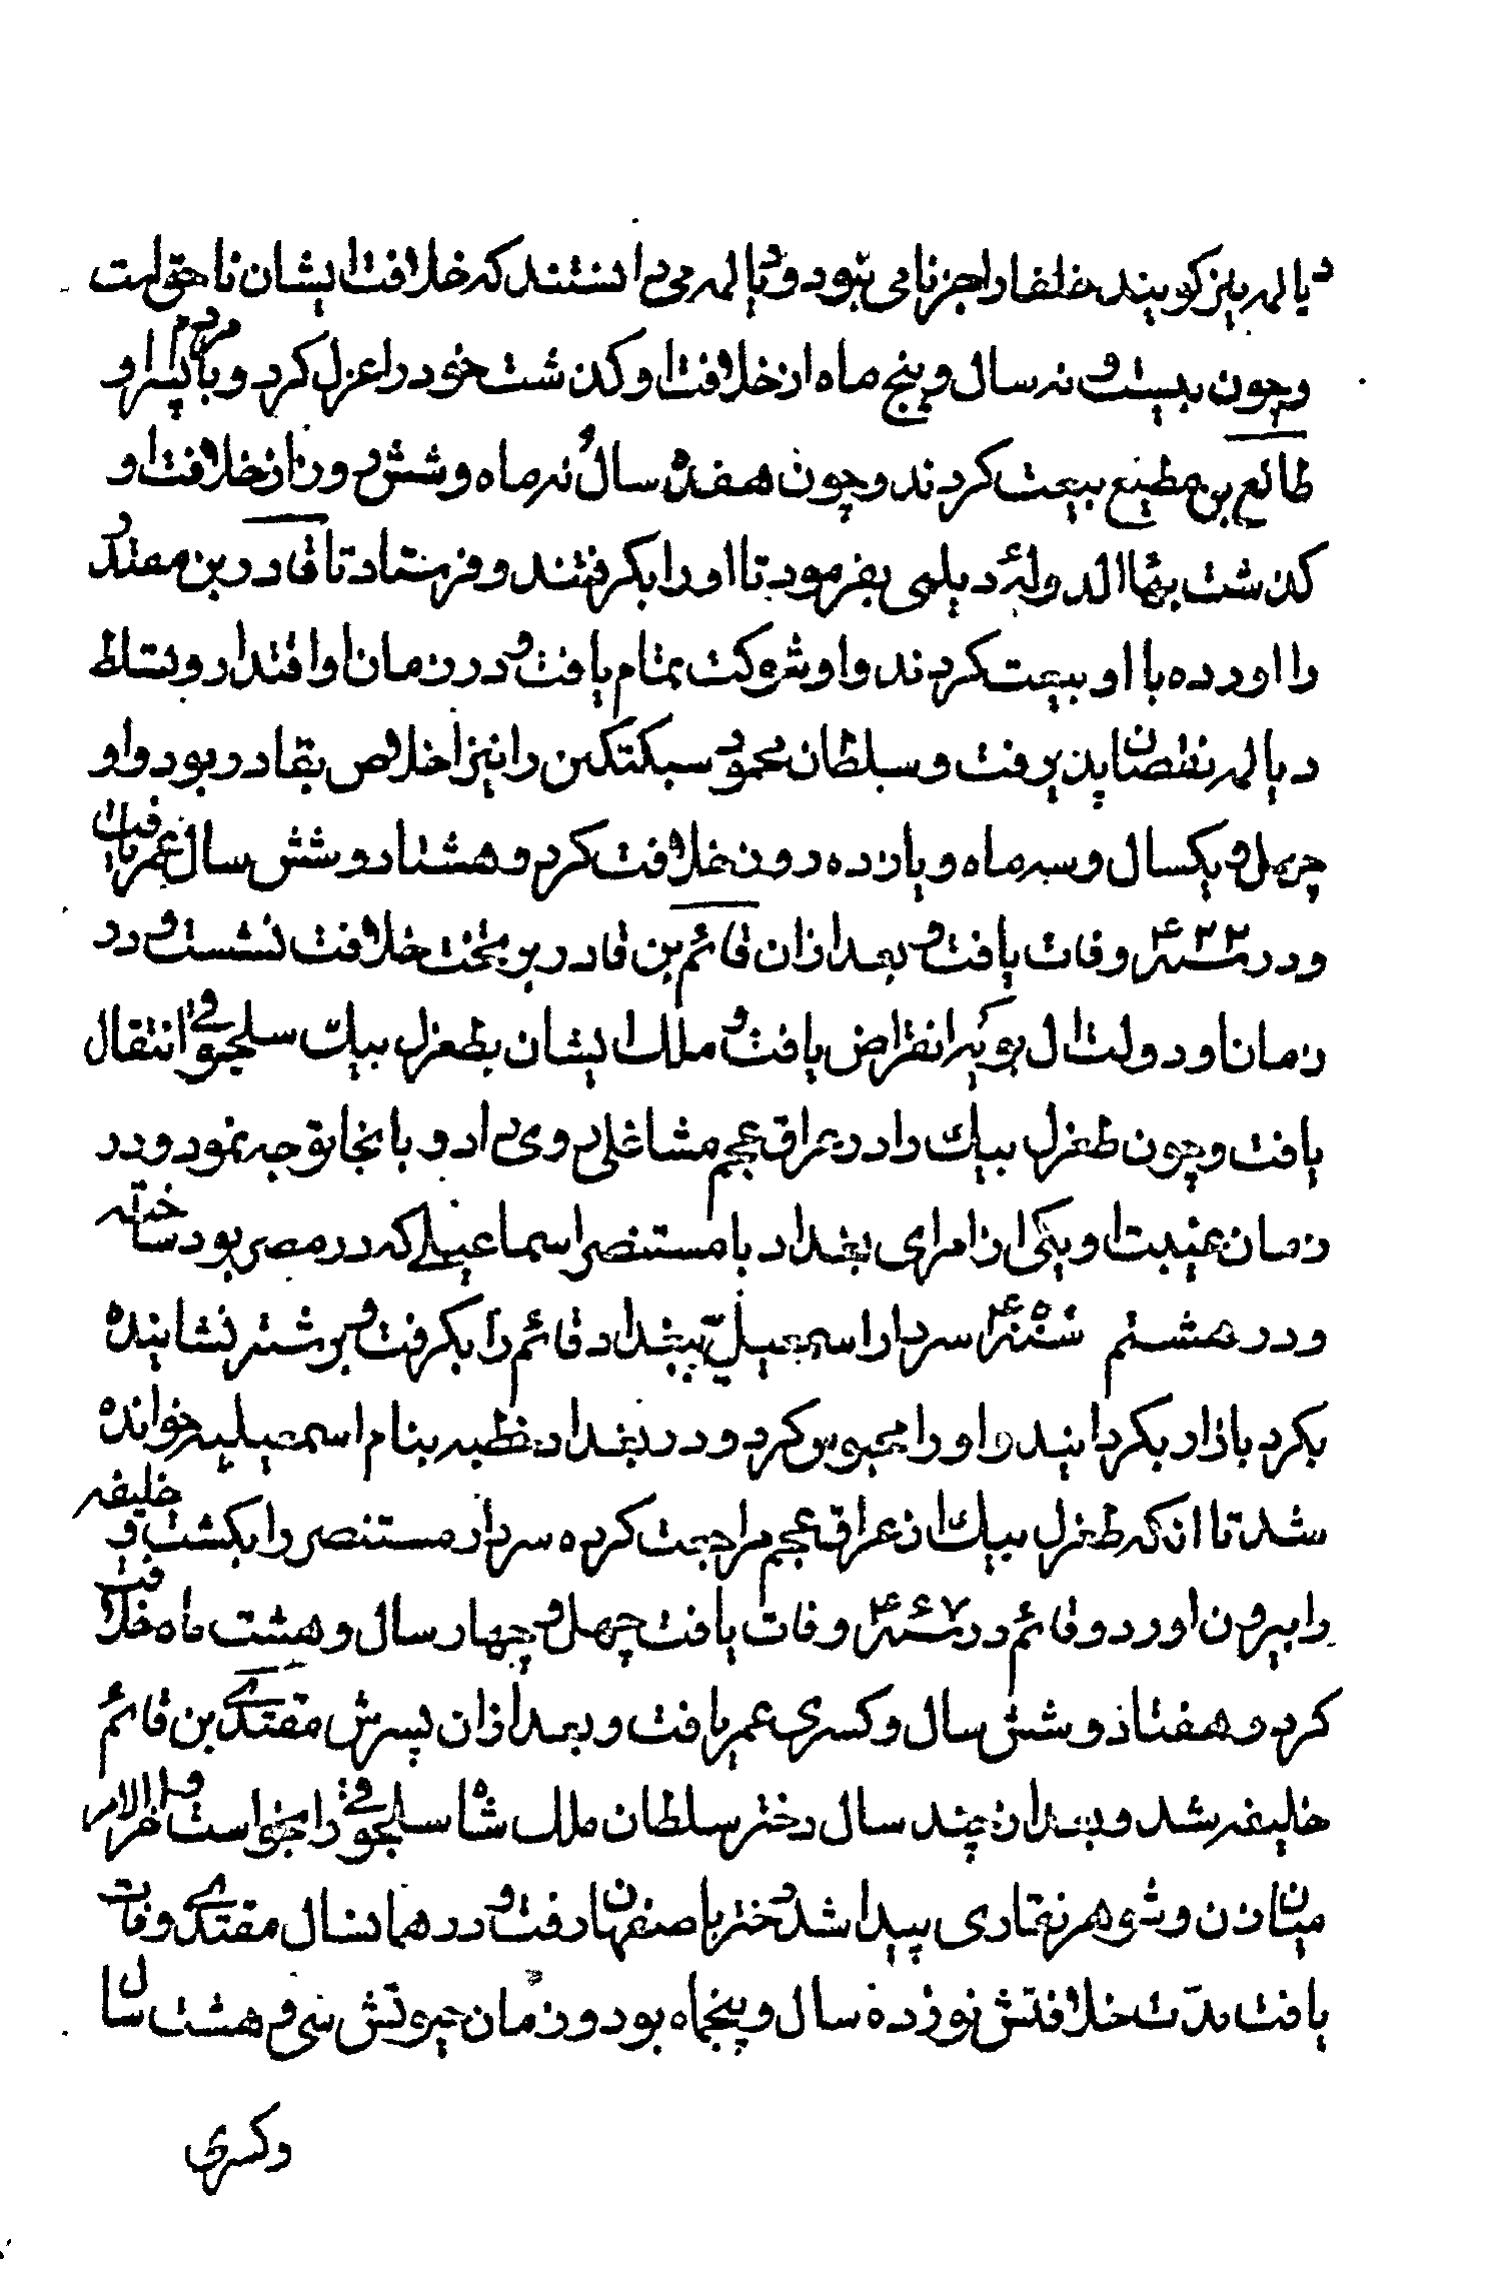 دیالمه نیز کویند خلفا را جز نامی نبود و دیالمه می دانستند که خلافت ایشان ناحق است
و چون بیست و نه سال و پنج ماه از خلافت او کذشت خود را عزل کرد و مردم با پسر او
طائع بن مطیع بیعت کردند و چون هفده سال و نه ماه و شش روز از خلافت او
کذشت بهاالدولهٔ دیلمی بفرمود تا او را بکرفتند و فرستاد تا قادر بن مقتدر
را اورده با او بیعت کردند و او شوکت تمام یافت و در زمان او اقتدار و تسلط
دیالمه نقصان پذیرفت و سلطان محمود سبکتکین را نیز اخلاص بقادر بود و او
چهل و یکسال و سه ماه و یازده روز خلافت کرد و هشتاد و شش سال عمر یافت
و در سنه ۴۲۲ وفات یافت و بعد ازان قائم بن قادر بر تخت خلافت نشست و در
زمان او دولت ال بویه انقراض یافت و ملک ایشان بطغرل بیک سلجوقی انتقال
یافت و چون طغرل بیک را در عراق عجم مشاغلی روی داد و بانجا توجه نمود و در
زمان غیبت او یکی از امرای بغداد با مستنصر اسماعیلی که در مصر بود ساخته
و در هشتم سنه ۴۵۰ سردار اسمعیلی ببغداد قائم را بکرفت و بر شتر نشاینده
بکرد بازار بکردانیند و او را محبوس کرد و در بغداد خطبه بنام اسمعیلیه خوانده
شد تا انکه طغرل بیک از عراق عجم مراجعت کرده سردار مستنصر را بکشت و خلیفه
را بیرون اورد و قائم در سنه ۴۶۷ وفات یافت چهل و چهار سال و هشت ماه خلافت
کرد و هفتاذ و شش سال و کسری عمر یافت و بعد ازان پسرش مقتدی بن قائم
خلیفه شد و بعد از چند سال دختر سلطان ملک شاه سلجوقی را بخواست و اخرالامر
میان زن و شوهر نقاری پیدا شد دختر باصفهان رفت و در همان سال مقتدی وفات
یافت مدّت خلافتش نوزده سال و پنجماه بود و زمان حیوتش سی و هشت سال
و کسری